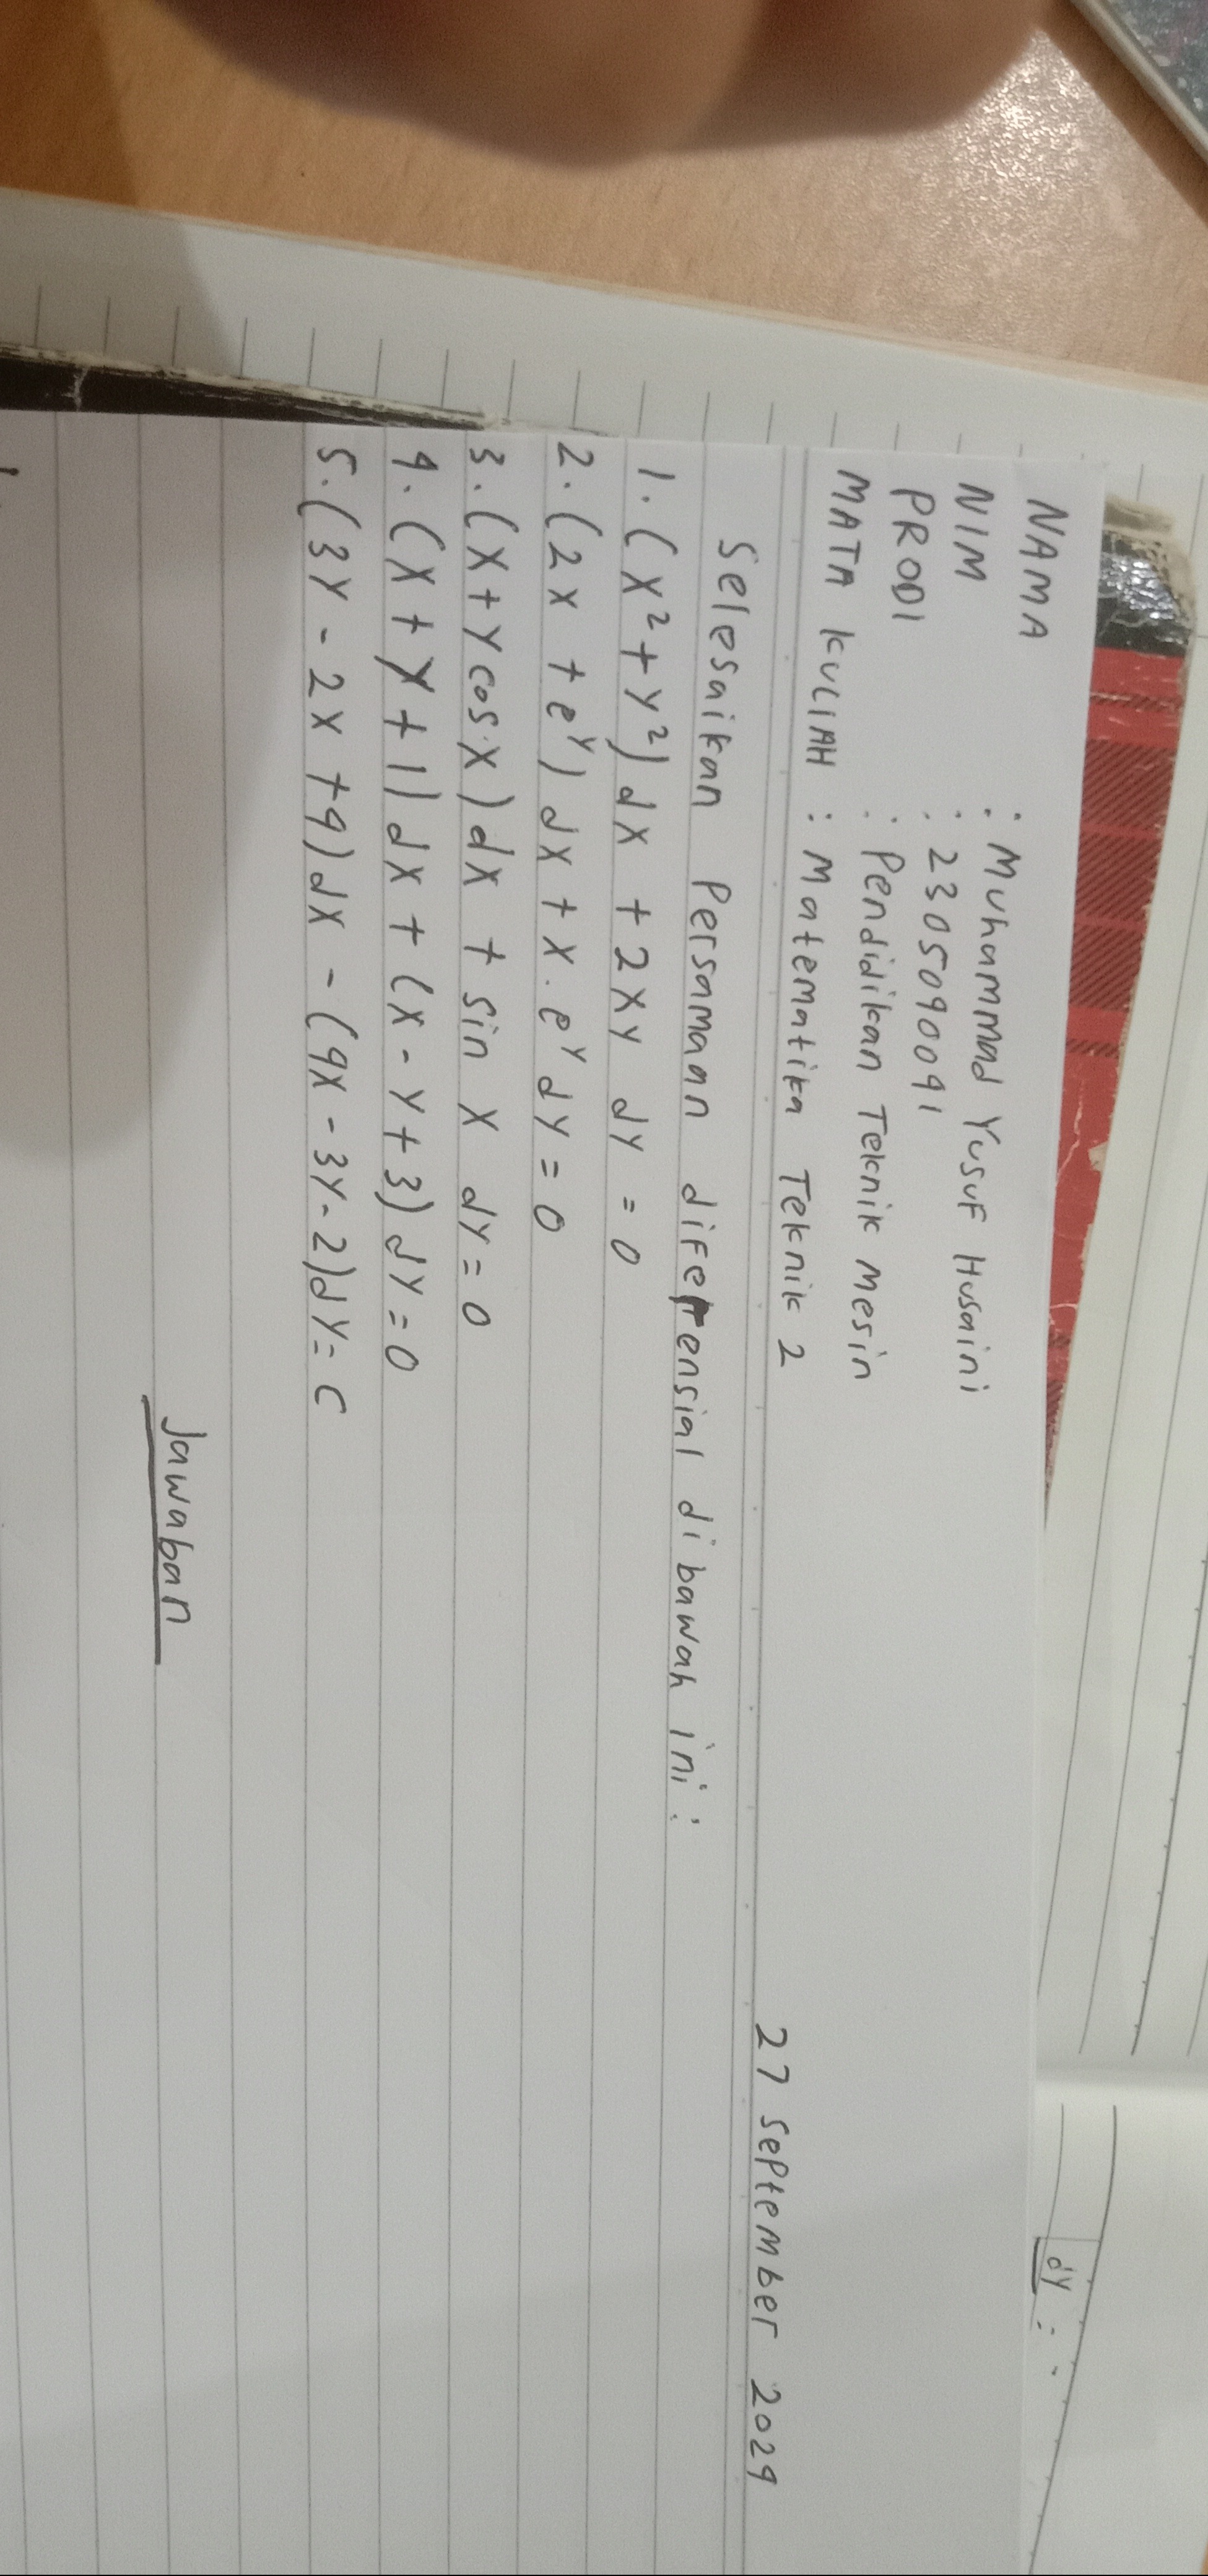 NAMA : Muhammad Yusuf Husaini
NIM : 2305090091
PRODI : Pendidikan Teknik Mesin
MATA KULIAH : Matematika Teknik 2
27 September 2024
Selesaikan Persamaan diferensial dibawah ini :
1. (x² + y²) dx + 2xy dy = 0
2. (2x + e^y) dx + x . e^y dy = 0
3. (x + y cos x) dx + sin x dy = 0
4. (x + y + 1) dx + (x - y + 3) dy = 0
5. (3y - 2x + 4) dx - (4x - 3y - 2) dy = C
Jawaban
dy :